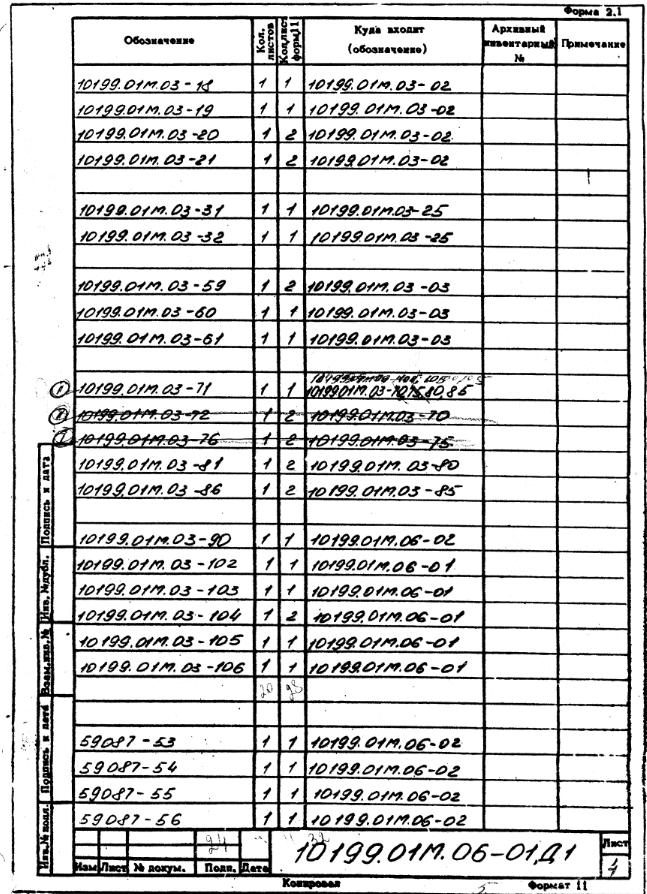 Форма 2.1
Обозначение Кол. листов Кол.лист форм11 Куда входит (обозначение) Архивный инвентарный № Примечание
10199.01М.03-18 1 1 10199.01М.03-02
10199.01М.03-19 1 1 10199.01М.03-02
10199.01М.03-20 1 2 10199.01М.03-02
10199.01М.03-21 1 2 10199.01М.03-02
10199.01М.03-31 1 1 10199.01М.03-25
10199.01М.03-32 1 1 10199.01М.03-25
10199.01М.03-59 1 2 10199.01М.03-03
10199.01М.03-60 1 1 10199.01М.03-03
10199.01М.03-61 1 1 10199.01М.03-03
10199.01М.03-71 1 1 10199.01М.03-70,75,80,85
10199.01М.03-72 1 2 10199.01М.03-70
10199.01М.03-76 1 2 10199.01М.03-75
10199.01М.03-81 1 2 10199.01М.03-80
10199.01М.03-86 1 2 10199.01М.03-85
10199.01М.03-90 1 1 10199.01М.06-02
10199.01М.03-102 1 1 10199.01М.06-01
10199.01М.03-103 1 1 10199.01М.06-01
10199.01М.03-104 1 2 10199.01М.06-01
10199.01М.03-105 1 1 10199.01М.06-01
10199.01М.03-106 1 1 10199.01М.06-01
20 28
59087-53 1 1 10199.01М.06-02
59087-54 1 1 10199.01М.06-02
59087-55 1 1 10199.01М.06-02
59087-56 1 1 10199.01М.06-02
Подпись и дата
Инв. №дубл.
Взам.инв.№
Подпись и дата
Инв.№ подл.
24 32
Изм Лист № докум. Подп. Дата
10199.01М.06-01Д1
Лист
4
Копировал Формат 11